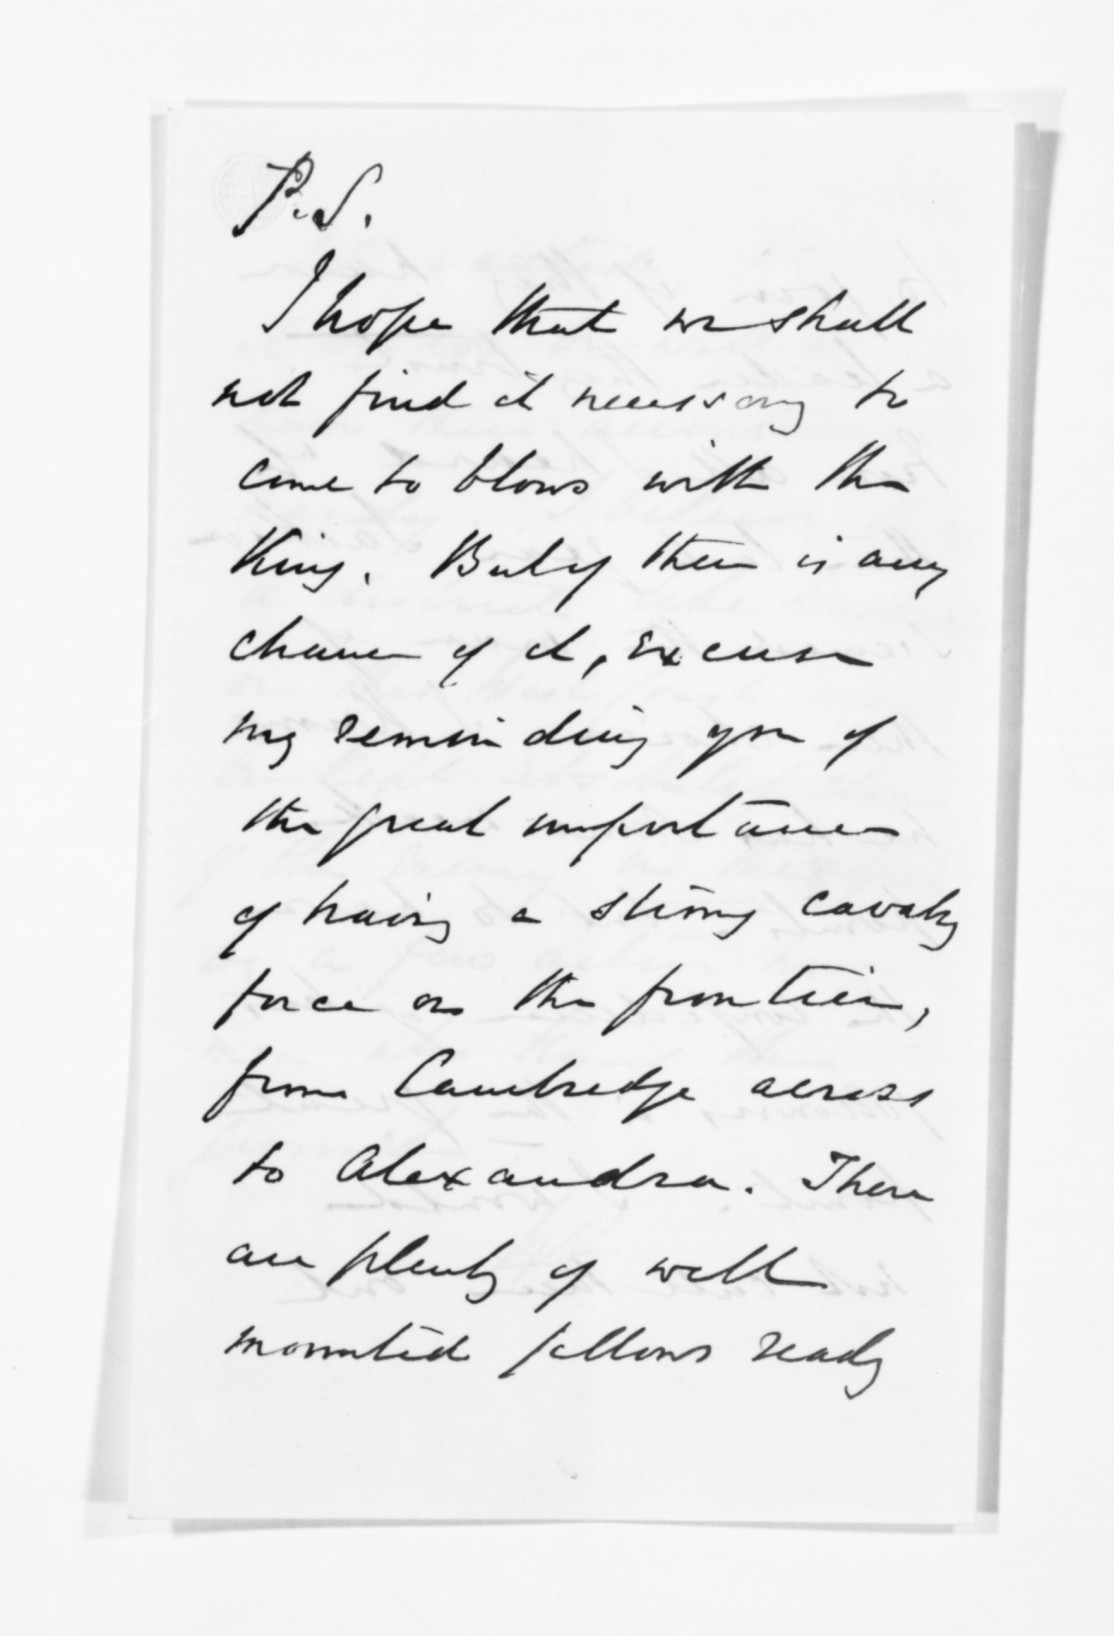 P.S.
I hope that we shall
not find it necessary to
come to blows with the
King. But if there is any
chance of it, excuse
my reminding you of
the great importance
of having a strong cavalry
force on the frontier,
from Cambridge across
to Alexandra. There
are plenty of well
mounted fellows ready